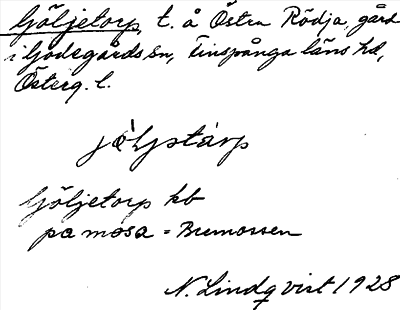 Göljetorp, t. å Östra Rödja, gård
i Godegårds sn, Finspånga läns hd,
Österg. l.
jö̀ljstarp
Göljetorp hb
pa mosa = Bremossen
N. Lindqvist 1928